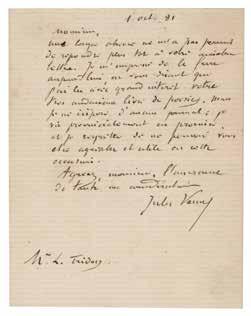 1 oct. 91
Monsieur,
une longue absence ne m'a pas permis
de répondre plus tôt à votre aimable
lettre. Je m'empresse de le faire
aujourd'hui en vous disant que
j'ai lu avec grand intérêt votre
livre de poésies, mais
je ne dispose d'aucun journal; je
vis provincialement en province
et je regrette de ne pouvoir vous
être agréable et utile en cette
occasion.
Agréez, monsieur, l'assurance
de toute ma considération
Jules Verne
Mr. L.